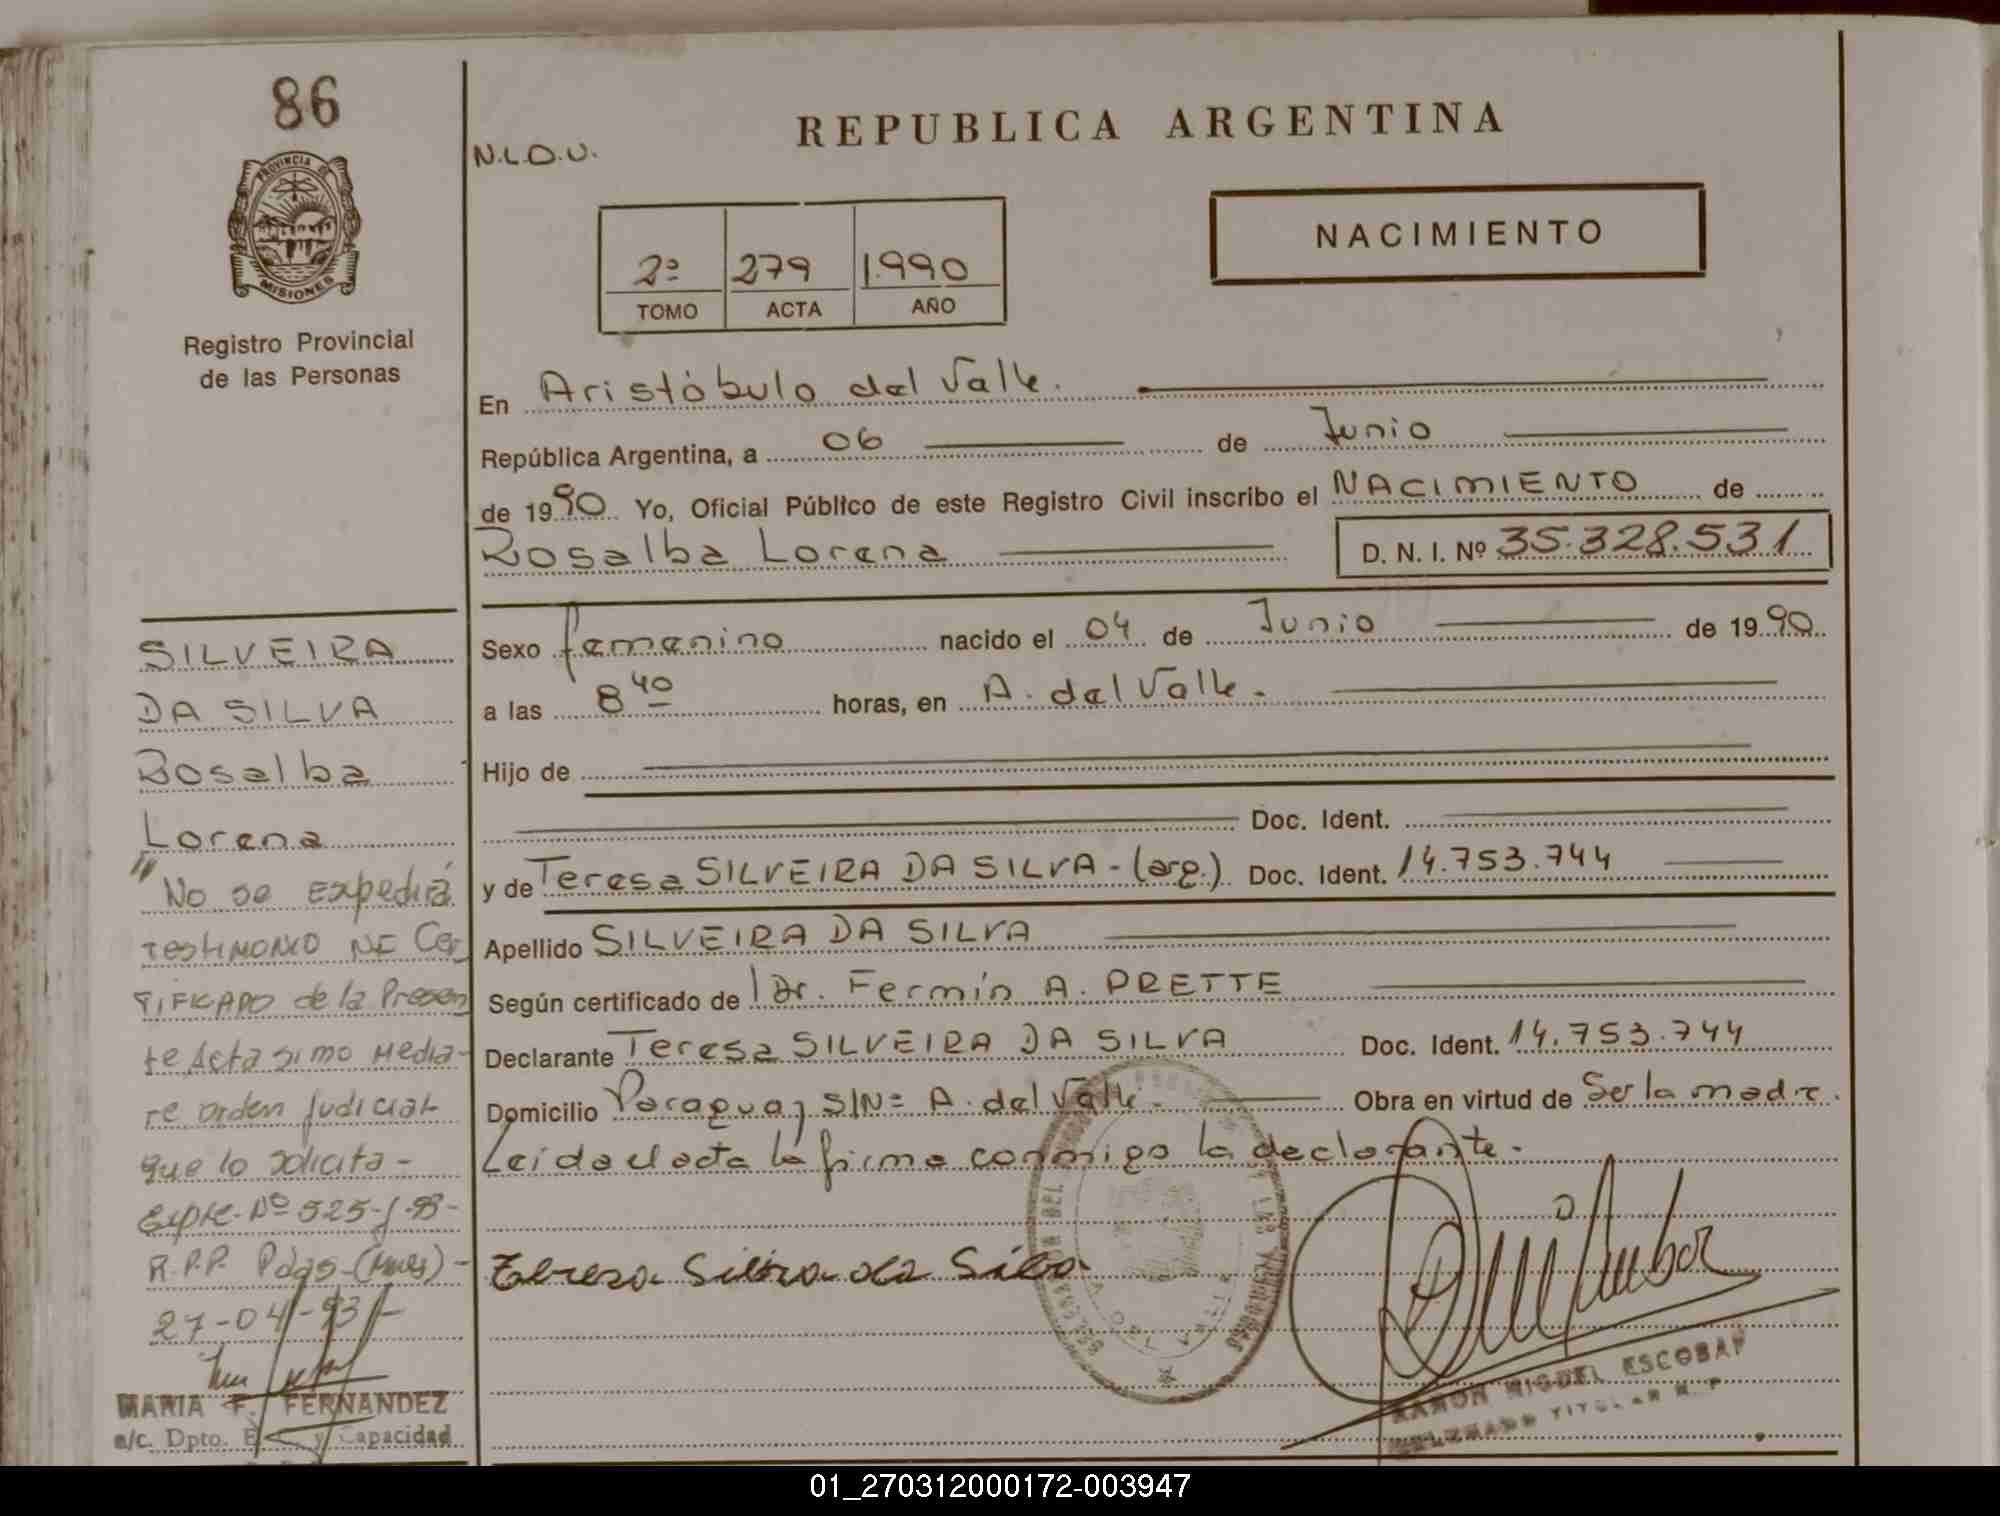 86
PROVINCIA DE
MISIONES
Registro Provincial
de las Personas
SILVEIRA
DA SILVA
Rosalba
Lorena
"No se expedirá
testimonio ni Cer
tificado de la Presen
te Acta simo media-
te orden judicial
que lo solicita-
Expte. Nº 525-J-93-
R.P.P. Pdas-(Mnes)-
27-04-93/-
MARIA F. FERNANDEZ
a/c. Dpto. E. C. y Capacidad
REPUBLICA ARGENTINA
N.L.O.U.
2º 279 1.990
TOMO ACTA AÑO
NACIMIENTO
En Aristóbulo del Valle.
República Argentina, a 06 de Junio
de 1990 Yo, Oficial Público de este Registro Civil inscribo el NACIMIENTO de
Rosalba Lorena D. N. I. Nº 35.328.531
Sexo femenino nacido el 04 de Junio de 1990
a las 8 40 horas, en A. del Valle.
Hijo de
Doc. Ident.
y de Teresa SILVEIRA DA SILVA - (arg.) Doc. Ident. 14.753.744
Apellido SILVEIRA DA SILVA
Según certificado de Dr. Fermín A. PRETTE
Declarante Teresa SILVEIRA DA SILVA Doc. Ident. 14.753.744
Domicilio Paraguay S/Nº A. del Valle. Obra en virtud de Ser la madre.
Leída el acta la firma conmigo la declarante.-
Teresa Silvira da Silva
RAMON MIGUEL ESCOBAR
DELEGADO TITULAR R. P.
01_270312000172-003947